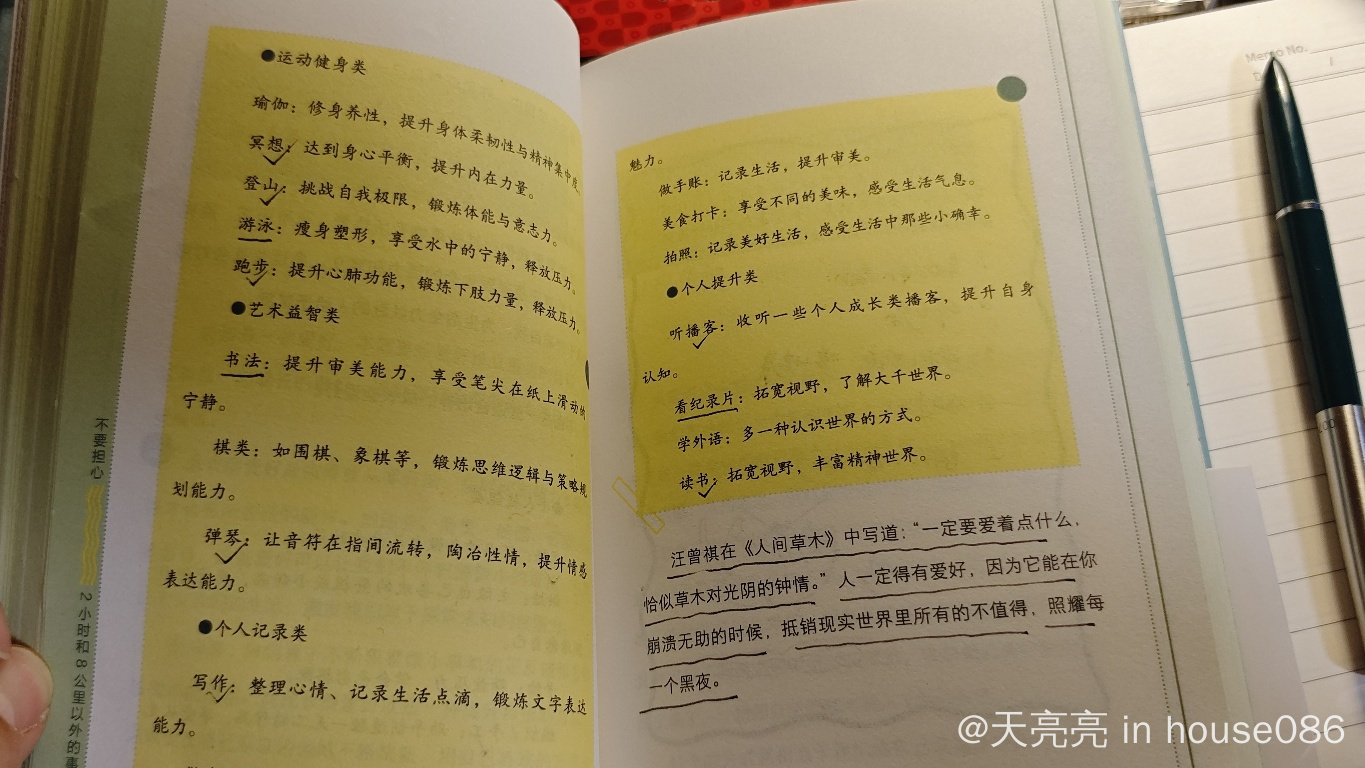 ●运动健身类
瑜伽：修身养性，提升身体柔韧性与精神集中度
冥想：达到身心平衡，提升内在力量。
登山：挑战自我极限，锻炼体能与意志力。
游泳：瘦身塑形，享受水中的宁静，释放压力。
跑步：提升心肺功能，锻炼下肢力量，释放压力。
●艺术益智类
书法：提升审美能力，享受笔尖在纸上滑动的
宁静。
棋类：如围棋、象棋等，锻炼思维逻辑与策略规
划能力。
弹琴：让音符在指间流转，陶冶性情，提升情感
表达能力。
●个人记录类
写作：整理心情、记录生活点滴，锻炼文字表达
能力。
不要担心
2小时和8公里以外的事
魅力。
做手账：记录生活，提升审美。
美食打卡：享受不同的美味，感受生活气息。
拍照：记录美好生活，感受生活中那些小确幸。
●个人提升类
听播客：收听一些个人成长类播客，提升自身
认知。
看纪录片：拓宽视野，了解大千世界。
学外语：多一种认识世界的方式。
读书：拓宽视野，丰富精神世界。
汪曾祺在《人间草木》中写道：“一定要爱着点什么，
恰似草木对光阴的钟情。”人一定得有爱好，因为它能在你
崩溃无助的时候，抵销现实世界里所有的不值得，照耀每
一个黑夜。
Memo No.
@天亮亮 in house086